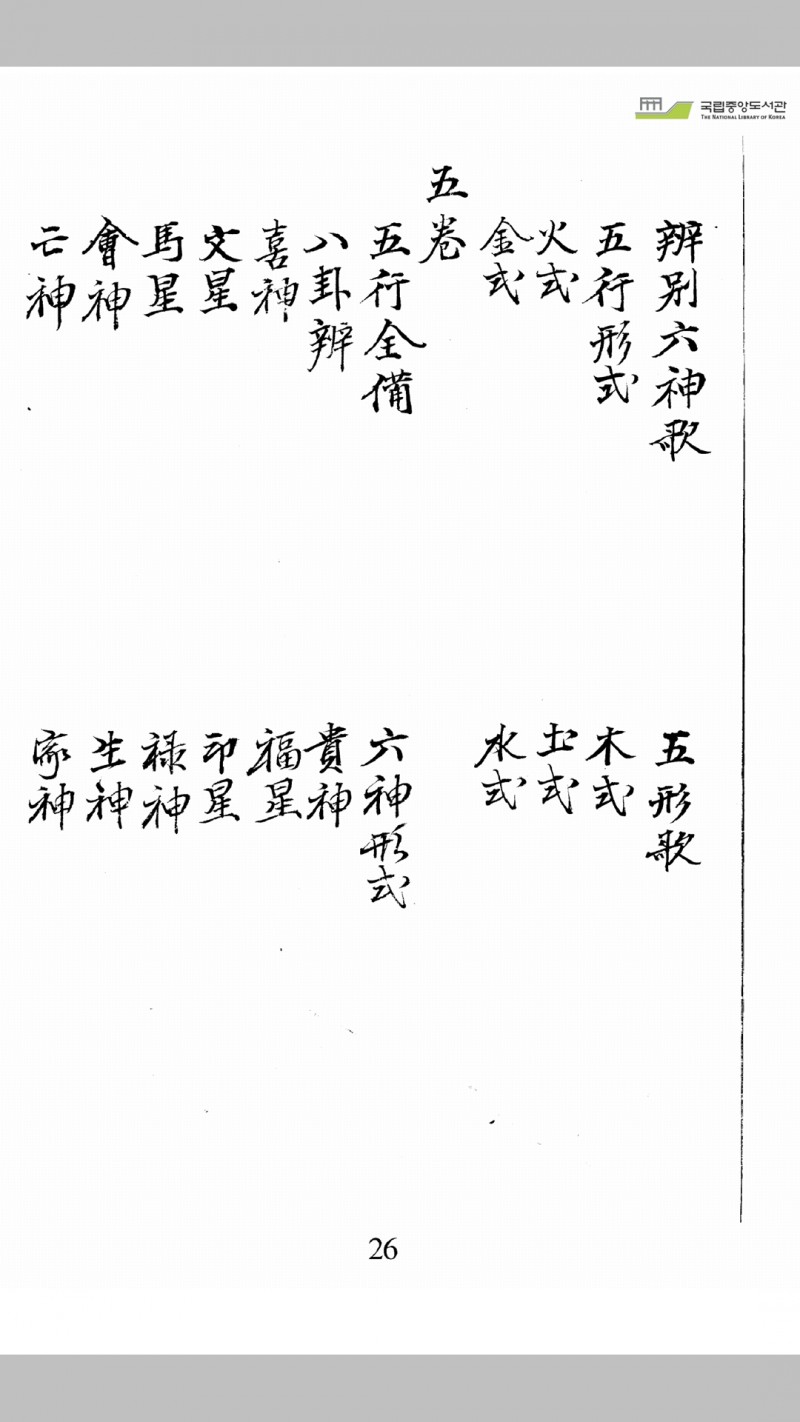 국립중앙도서관
THE NATIONAL LIBRARY OF KOREA
辨别六神歌
五形歌
五行形式
木式
火式
土式
金式
水式
五卷
五行全備
六神形式
八卦辨
貴神
喜神
福星
文星
印星
馬星
祿神
會神
生神
亡神
家神
26